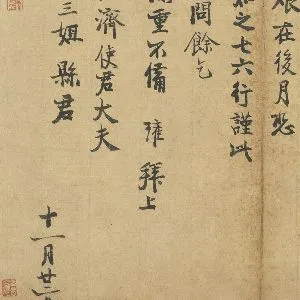 在後月
之七六行謹此
問餘乞
重不備 拜上
濟使君大夫
三姐縣君
十一月廿三